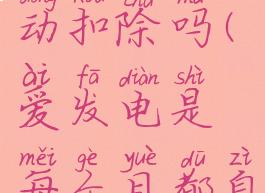 动扣除吗(
ài fā diàn shì
爱发电是
měi gè yuè dū zì
每个月都自